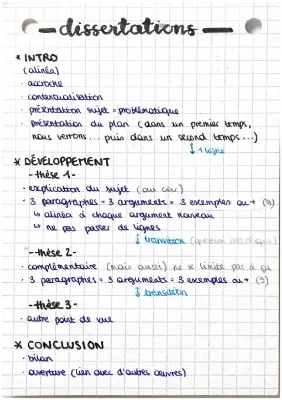 dissertations
* INTRO
(alinéa)
• accroche
• contextualisation
• présentation sujet = problématique
• présentation du plan (dans un premier temps,
nous verrons... puis dans un second temps...)
↓ 1 ligne
* DÉVELOPPEMENT
-thèse 1-
• explication du sujet (oui car)
• 3 paragraphes = 3 arguments = 3 exemples au + (9)
↳ alinéa à chaque argument nouveau
↳ ne pas passer de lignes
↓ transition (question rhétorique)
-thèse 2-
• complémentaire (mais aussi) ne se limite pas à ça
• 3 paragraphes = 3 arguments = 3 exemples au + (9)
↓ transition
-thèse 3-
• autre point de vue
* CONCLUSION
• bilan
• ouverture (lien avec d'autres œuvres)